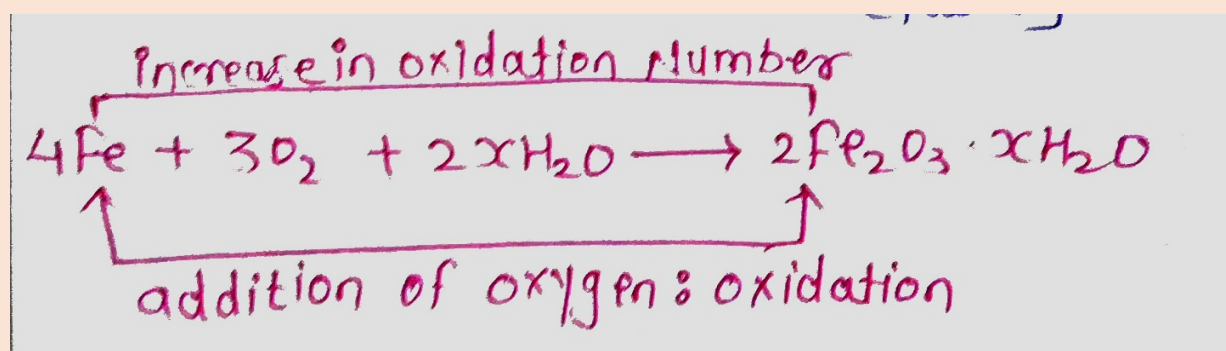 increase in oxidation Number
4Fe + 3O₂ + 2xH₂O → 2Fe₂O₃·xH₂O
addition of oxygen: oxidation